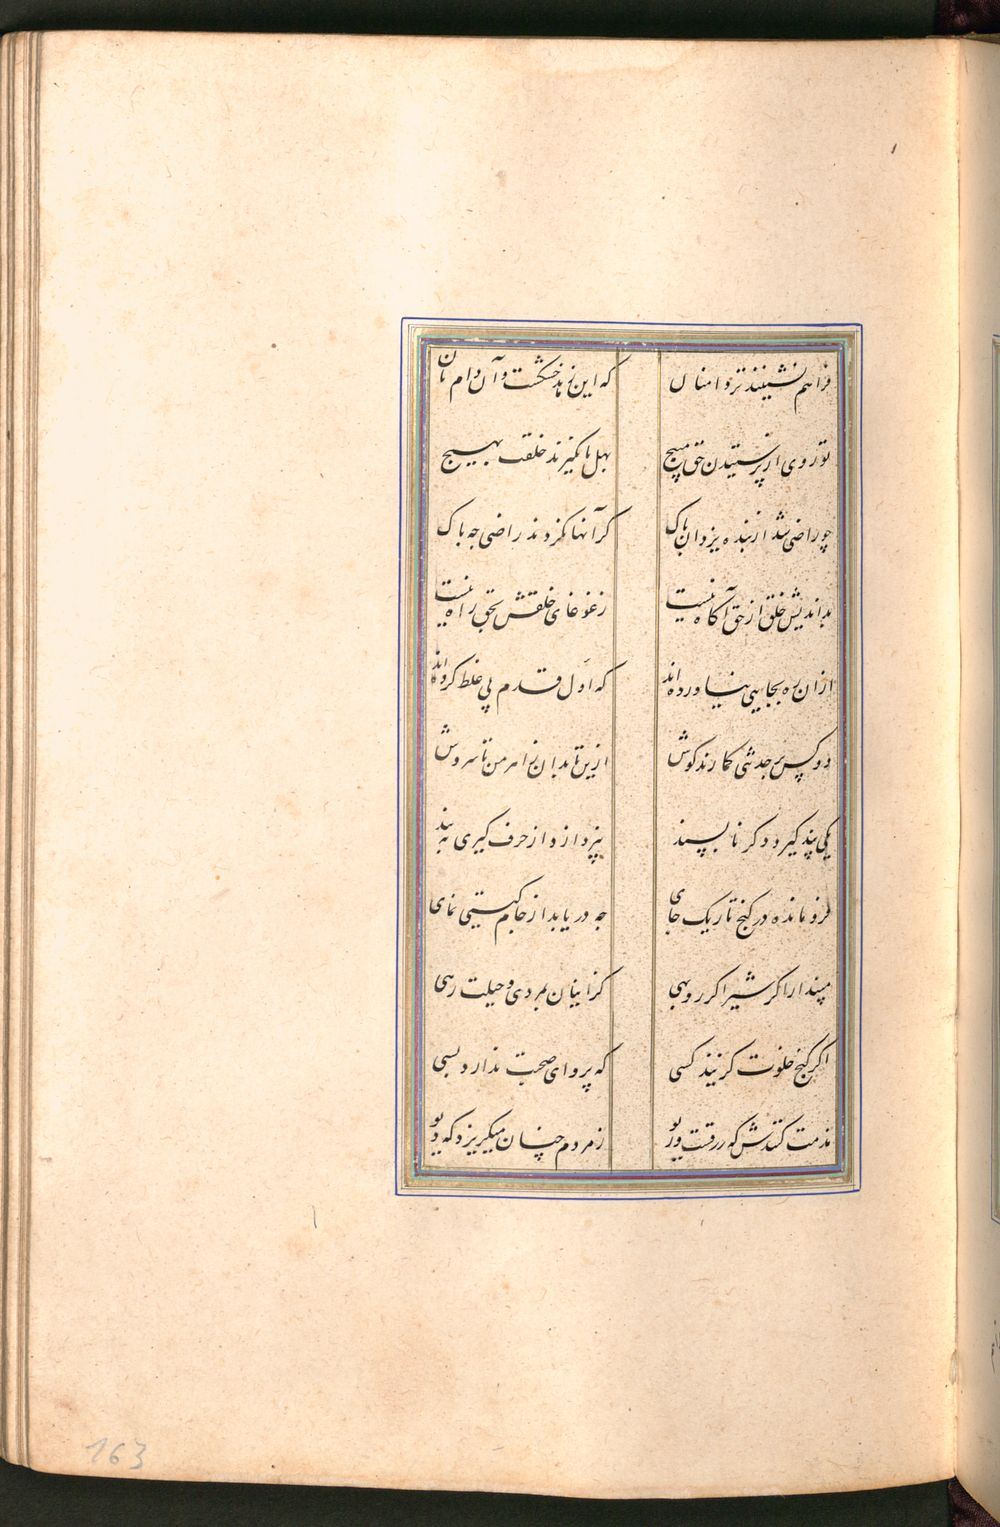 فراهم نشینند تردامنان که این زهد خشکست و آن دام نان
تو روی از پرستیدن حق مپیچ بهل تا نگیرند خلقت بهیچ
چو راضی شد از بنده یزدان پاک گر آنها نگردند راضی چه باک
بداندیش خلق از حق آگاه نیست ز غوغای خلقش بحق راه نیست
از آن ره بجایی نیاورده‌اند که اول قدم پی غلط کرده‌اند
دو کس بر حدیثی گمارند گوش ازین تا بدان ز اهرمن تا سروش
یکی پند گیرد دگر ناپسند نپردازد از حرف گیری به پند
فرومانده در کنج تاریک جای چه دریابد از جام گیتی نمای
مپندار اگر شیر اگر روبهی کز اینان بمردی و حیلت رهی
اگر کنج خلوت گزیند کسی که پروای صحبت ندارد بسی
مذمت کنندش که زرقست و ریو ز مردم چنان میگریزد که دیو
163